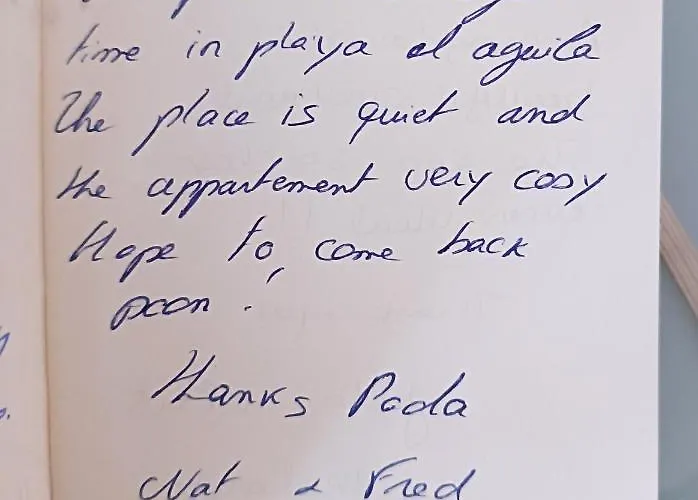 time in playa el aguila
The place is quiet and
the appartement very cosy
Hope to come back
soon !
Thanks Paola
Nat & Fred